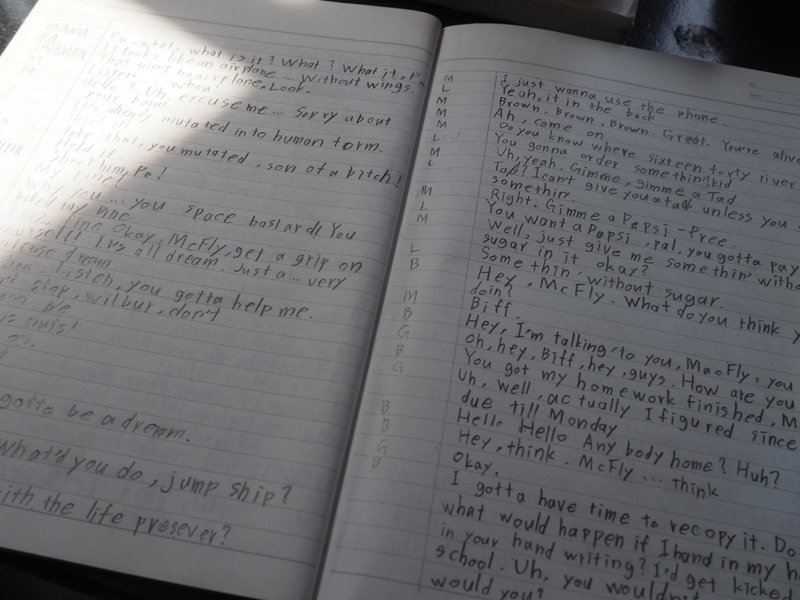 MAMA
PA Pa, what, what is it? What? What it, P
SHERMAN It looks like an airplane... Without wings.
That ain't no airplane, Look.
M Listen - Whoa!
M Hello? Uh, excuse me... Sorry about
your barn.
S Show, already mutated into human form.
Take that, you mutated, son of a bitch!
Hold it
Shoot him, Pa!
My pine!
Why you...you space bastard! You
killed my pine
Fine okay, McFly, get a grip on
yourself! It's all dream. Just a... very
intense dream
Listen, you gotta help me.
stop, Wilbur, don't
be
is nuts!
gotta be a dream.
What'd you do, jump ship?
with the life presever?
M I just wanna use the phone
L Yeah, it in the back
M Brown. Brown, Brown. Great. You're alive
M Ah, come on
M Do you know where sixteen forty river
LOU You gonna order somethin' kid
M Uh, yeah. Gimme, gimme a Tad
L Tab? I can't give you a tab unless you
somethin.
M Right. Gimme a Pepsi-free.
L You want a Pepsi, pal, you gotta pay
M Well, just give me somethin' witho
sugar in it okay?
L Some thin, without sugar.
B Hey, McFly. What do you think y
doin?
M Biff.
B Hey, I'm talking to you, MacFly, you
G Oh, hey, Biff, hey, guys. How are you
B You got my homework finished, M
G Uh, well, actually I figured since
due till Monday
B Hello Hello Any body home? Huh?
B Hey, think. McFly... think
G Okay.
B I gotta have time to recopy it. Do
what would happen if I hand in my h
in your hand writing? I'd get kicked
school. Uh, you wouldn't
would you?